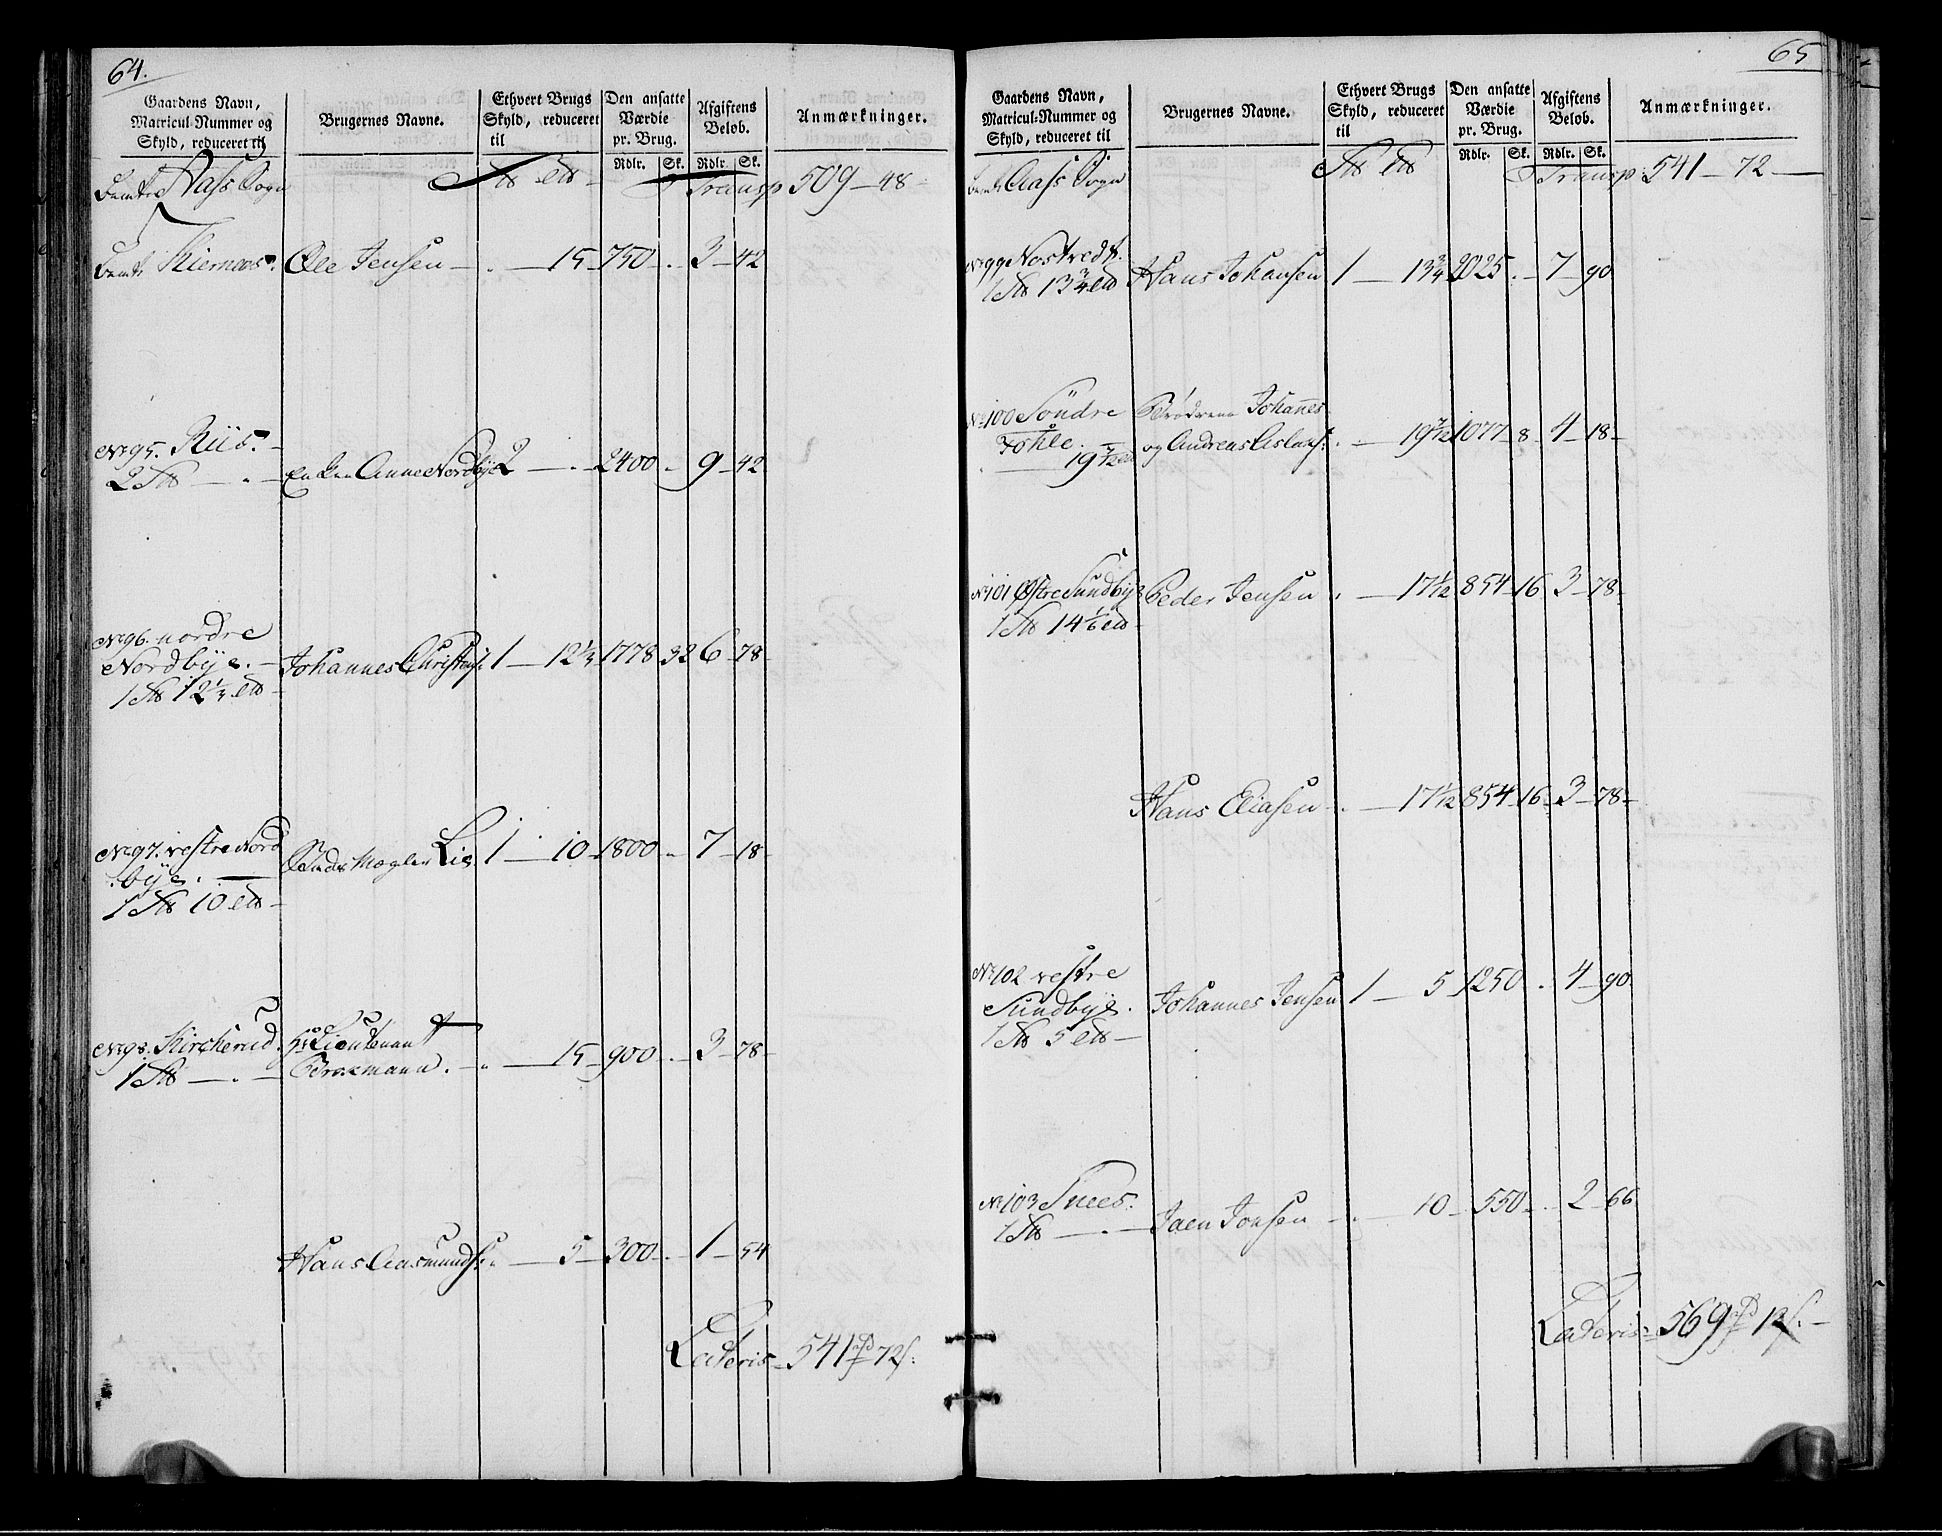 64.
Gaardens Navn,
Matricul-Nummer og
Skyld, reduceret til
Brugernes Navne.
Ethvert Brugs
Skyld, reduceret
til
Den ansatte
Værdie
pr. Brug.
Rdlr. Sk.
Afgiftens
Beløb.
Rdlr. Sk.
Anmærkninger.
Aass Sogn
Transp 509 - 48 -
Kiernaas. Ole Jensen - . - 15 - 750 - . - 3 - 42
No 95. Riis. -
2 - . - Enken Anne Nordbye 2 - . - 2400 - 9 - 42
No 96. nordre
Nordbye. - Johannes Christens: 1 - 12 1/3 1778 32 6 - 78 -
1 12 1/3
No 97. vestre Nord
bye. - Lie 1 - 10 - 1800 - 7 - 18 -
1 10
No 98. Kircherud. Hr Lieutenant
1 - . - Brockmann. - . - 15 - 900 - . - 3 - 78 -
Hans Aasmunds: - 5 - 300 - . - 1 - 54
Lateris - 541 rd 72 s.
65
Gaardens Navn,
Matricul-Nummer og
Skyld, reduceret til
Brugernes Navne.
Ethvert Brugs
Skyld, reduceret
til
Den ansatte
Værdie
pr. Brug.
Rdlr. Sk.
Afgiftens
Beløb.
Rdlr. Sk.
Anmærkninger.
Aass Sogn
Transp: 541 - 72 -
No 99 Nostvedt. Hans Johansen 1 - 13 3/4 2025 . - 7 - 90
1 13 3/4
No 100 Söndre Brödrene Johannes
Fohle. og Andreas Aslaks: . - 19 7/12 1077 - 8 - 4 - 18 -
19 7/12
No 101 Østre Sundbye Peder Jensen . - 17 1/12 854 - 16 3 - 78 -
1 14 1/6
Hans Eliasen - . - 17 1/12 854 - 16 - 3 - 78 -
No 102 vestre
Sundbye. Johannes Jensen 1 - 5 1250 . - 4 - 90
1 5
No 103 Snees.
1 - . - Jaen Jonsen - . - 10 - 550 - . - 2 - 66
Lateris - 569 rd 12 s. -